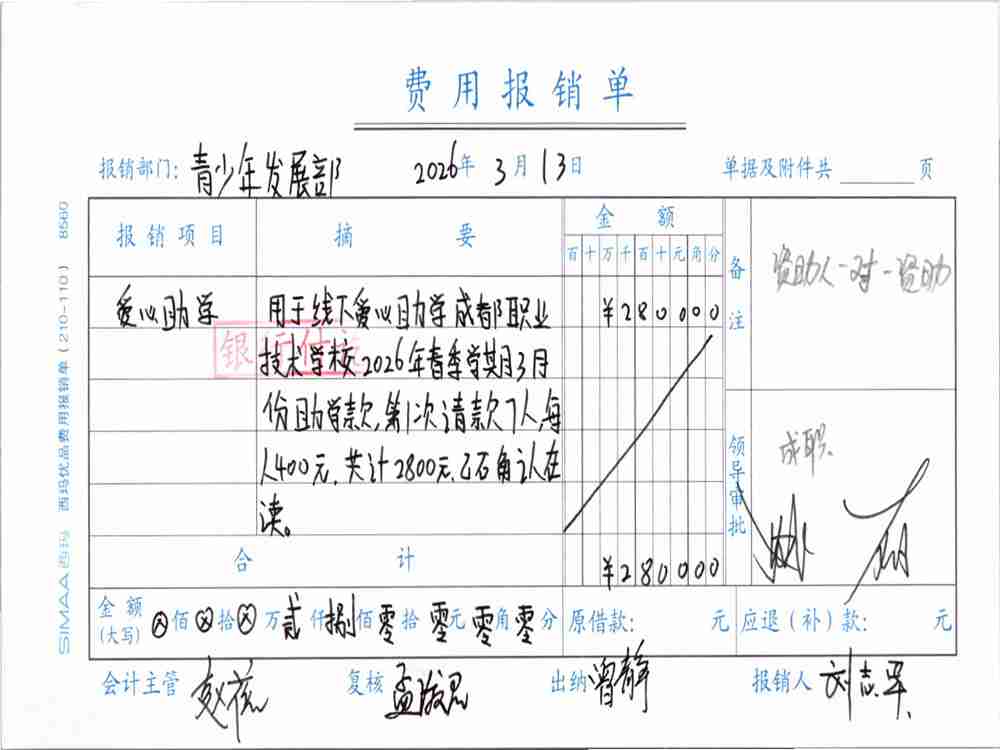 费用报销单
报销部门: 青少年发展部 2026年 3月 13日 单据及附件共 页
报销项目 摘要 金额 备注 资助人一对一资助
百十万千百十元角分
爱心助学 用于线下爱心助学成都职业 ¥280000
技术学校2026年春季学期3月
份助学款,第1次请款7人,每
人400元,共计2800元,已石角认在
读。
银行付讫
领导审批 成职.
合计 ¥280000
金额(大写) ⊗佰⊗拾⊗万贰仟捌佰零拾零元零角零分 原借款: 元 应退(补)款: 元
会计主管 复核 出纳 曾静 报销人 刘志军
SIMAA西玛 西玛优品费用报销单(210-110) 8560